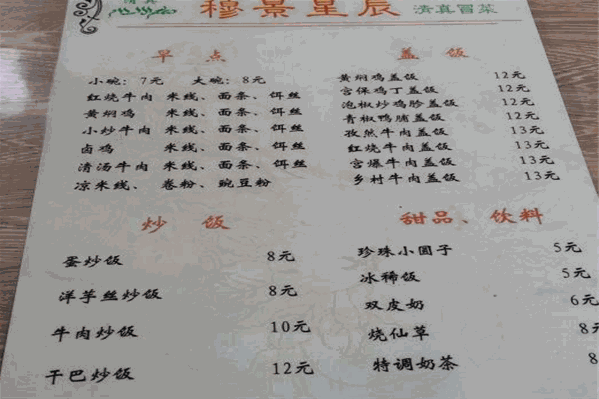 清真
穆景星辰 清真冒菜
早 点
小碗：7元 大碗：8元
红烧牛肉 米线、面条、饵丝
黄焖鸡 米线、面条、饵丝
小炒牛肉 米线、面条、饵丝
卤鸡 米线、面条、饵丝
清汤牛肉 米线、面条、饵丝
凉米线、 卷粉、豌豆粉
盖 饭
黄焖鸡盖饭 12元
宫保鸡丁盖饭 12元
泡椒炒鸡胗盖饭 12元
青椒鸭脯盖饭 12元
孜然牛肉盖饭 13元
红烧牛肉盖饭 13元
宫爆牛肉盖饭 13元
乡村牛肉盖饭 13元
炒 饭
蛋炒饭 8元
洋芋丝炒饭 8元
牛肉炒饭 10元
干巴炒饭 12元
甜品、饮料
珍珠小圆子 5元
冰稀饭 5元
双皮奶 6元
烧仙草 8元
特调奶茶 8